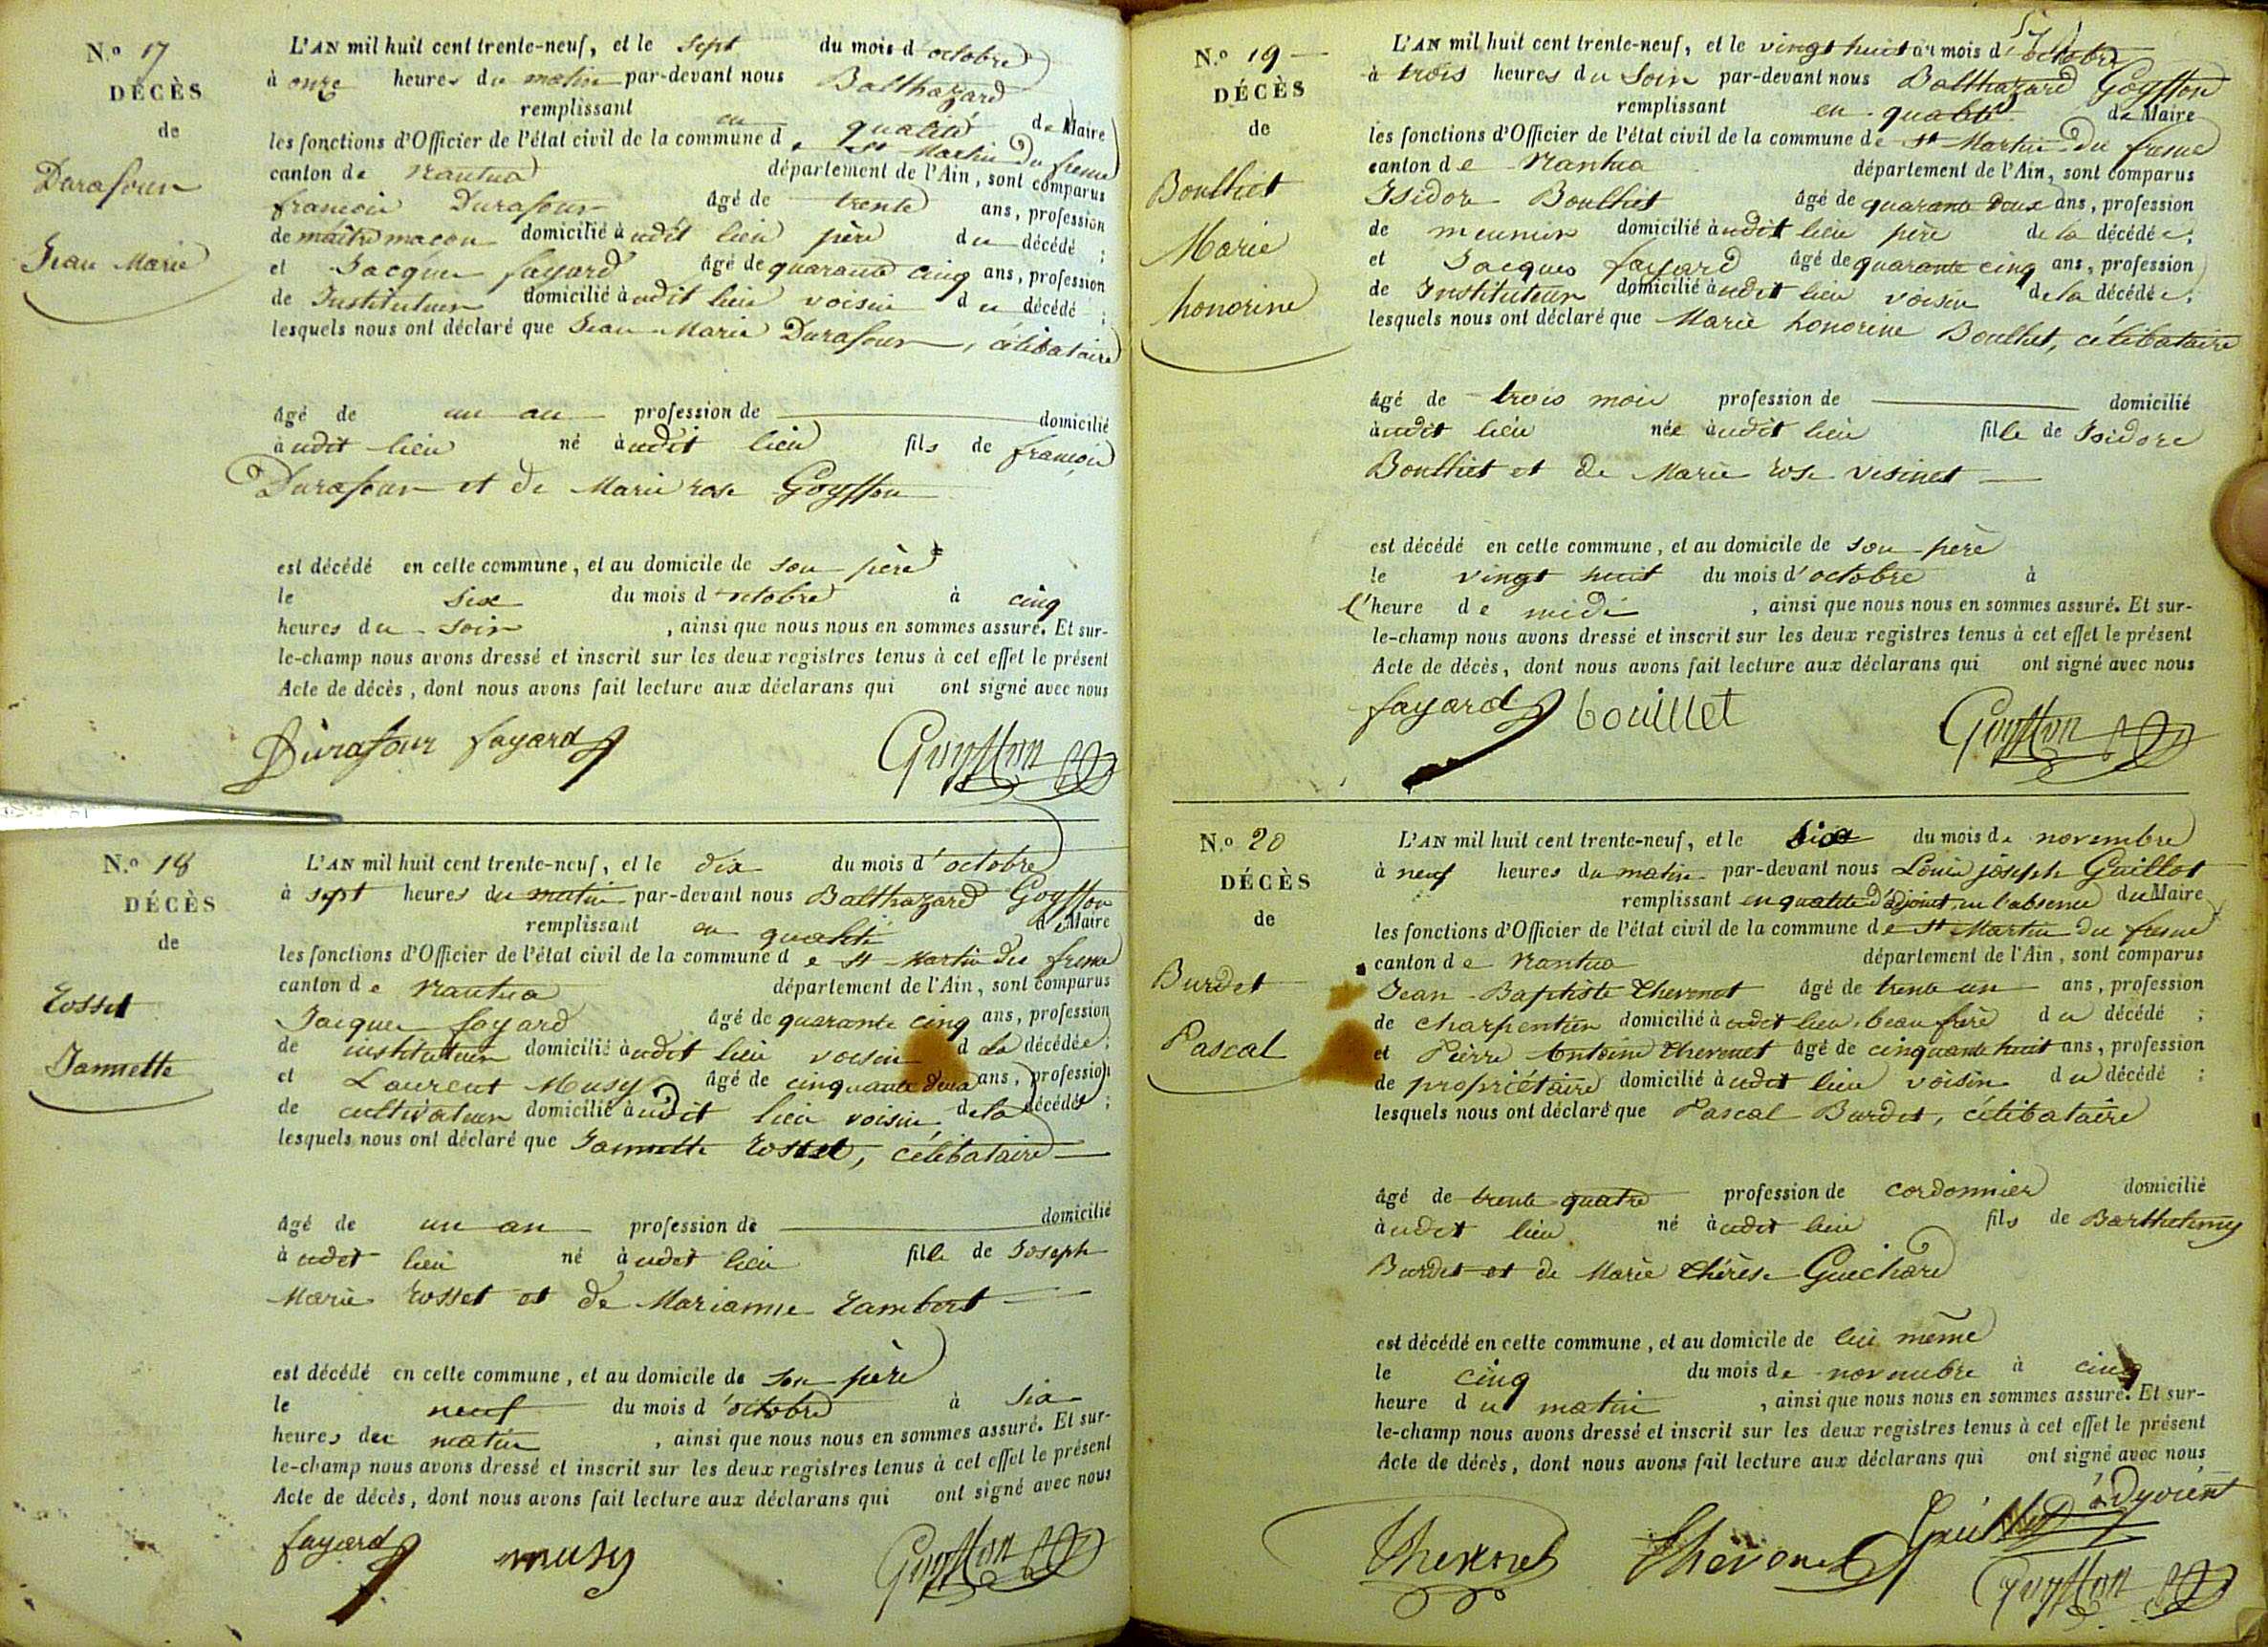 N.o 17
DÉCÈS
de
Durafour
Jean Marie
L'AN mil huit cent trente-neuf, et le sept du mois d'octobre
à onze heures du matin par-devant nous Balthazard
remplissant en qualité de Maire
les fonctions d'Officier de l'état civil de la commune de St Martin du fresne
canton de Nantua département de l'Ain, sont comparus
francois Durafour âgé de trente ans, profession
de maitre macon domicilié à udit lieu père du décédé ;
et Jacques fayard âgé de quarante cinq ans, profession
de Instituteur domicilié à udit lieu voisin du décédé ;
lesquels nous ont déclaré que Jean Marie Durafour, célibataire
âgé de un an profession de domicilié
à udit lieu né à udit lieu fils de francois
Durafour et de Marie rose Goyffon
est décédé en cette commune, et au domicile de son père
le six du mois d'octobre à cinq
heures du soir, ainsi que nous nous en sommes assuré. Et sur-
le-champ nous avons dressé et inscrit sur les deux registres tenus à cet effet le présent
Acte de décès, dont nous avons fait lecture aux déclarans qui ont signé avec nous
Durafour fayard Goyffon
N.o 18
DÉCÈS
de
Rosset
Jannette
L'AN mil huit cent trente-neuf, et le dix du mois d'octobre
à sept heures du matin par-devant nous Balthazard Goyffon
remplissant en qualité de Maire
les fonctions d'Officier de l'état civil de la commune de St Martin du fresne
canton de Nantua département de l'Ain, sont comparus
Jacques fayard âgé de quarante cinq ans, profession
de instituteur domicilié à udit lieu voisin de la décédée ;
et Laurent Musy âgé de cinquante deux ans, profession
de cultivateur domicilié à udit lieu voisin de la décédée ;
lesquels nous ont déclaré que Jannette Rosset, célibataire
âgé de un an profession de domicilié
à udit lieu né à udit lieu fille de Joseph
Marie Rosset et de Marianne Lambert
est décédé en cette commune, et au domicile de son père
le neuf du mois d'octobre à six
heures du matin, ainsi que nous nous en sommes assuré. Et sur-
le-champ nous avons dressé et inscrit sur les deux registres tenus à cet effet le présent
Acte de décès, dont nous avons fait lecture aux déclarans qui ont signé avec nous
fayard musy Goyffon
N.o 19
DÉCÈS
de
Boulliet
Marie
honorine
L'AN mil huit cent trente-neuf, et le vingt huit du mois d'octobre
à trois heures du Soir par-devant nous Balthazard Goyffon
remplissant en qualité de Maire
les fonctions d'Officier de l'état civil de la commune de St Martin du fresne
canton de Nantua département de l'Ain, sont comparus
Isidore Boulliet âgé de quarante deux ans, profession
de meunier domicilié à udit lieu père de la décédée ;
et Jacques fayard âgé de quarante cinq ans, profession
de Instituteur domicilié à udit lieu voisin de la décédée ;
lesquels nous ont déclaré que Marie honorine Boulliet, célibataire
âgé de trois mois profession de domicilié
à udit lieu née à udit lieu fille de Isidore
Boulliet et de Marie rose visinet
est décédé en cette commune, et au domicile de son père
le vingt huit du mois d'octobre à
l'heure de midi, ainsi que nous nous en sommes assuré. Et sur-
le-champ nous avons dressé et inscrit sur les deux registres tenus à cet effet le présent
Acte de décès, dont nous avons fait lecture aux déclarans qui ont signé avec nous
fayard bouillet Goyffon
N.o 20
DÉCÈS
de
Burdet
Pascal
L'AN mil huit cent trente-neuf, et le Six du mois de novembre
à neuf heures du matin par-devant nous Louis joseph Guillot
remplissant en qualité d'adjoint en l'absence du Maire
les fonctions d'Officier de l'état civil de la commune de St Martin du fresne
canton de Nantua département de l'Ain, sont comparus
Jean Baptiste Thevenet âgé de trente un ans, profession
de charpentier domicilié à udit lieu beau frère du décédé ;
et Pierre Antoine Thevenet âgé de cinquante huit ans, profession
de propriétaire domicilié à udit lieu voisin du décédé ;
lesquels nous ont déclaré que Pascal Burdet, célibataire
âgé de trente quatre profession de cordonnier domicilié
à udit lieu né à udit lieu fils de Barthelemy
Burdet et de Marie thérèse Guichard
est décédé en cette commune, et au domicile de lui même
le cinq du mois de novembre à cinq
heure du matin, ainsi que nous nous en sommes assuré. Et sur-
le-champ nous avons dressé et inscrit sur les deux registres tenus à cet effet le présent
Acte de décès, dont nous avons fait lecture aux déclarans qui ont signé avec nous
Thevenet Thevenet Guillot adjoint
Goyffon